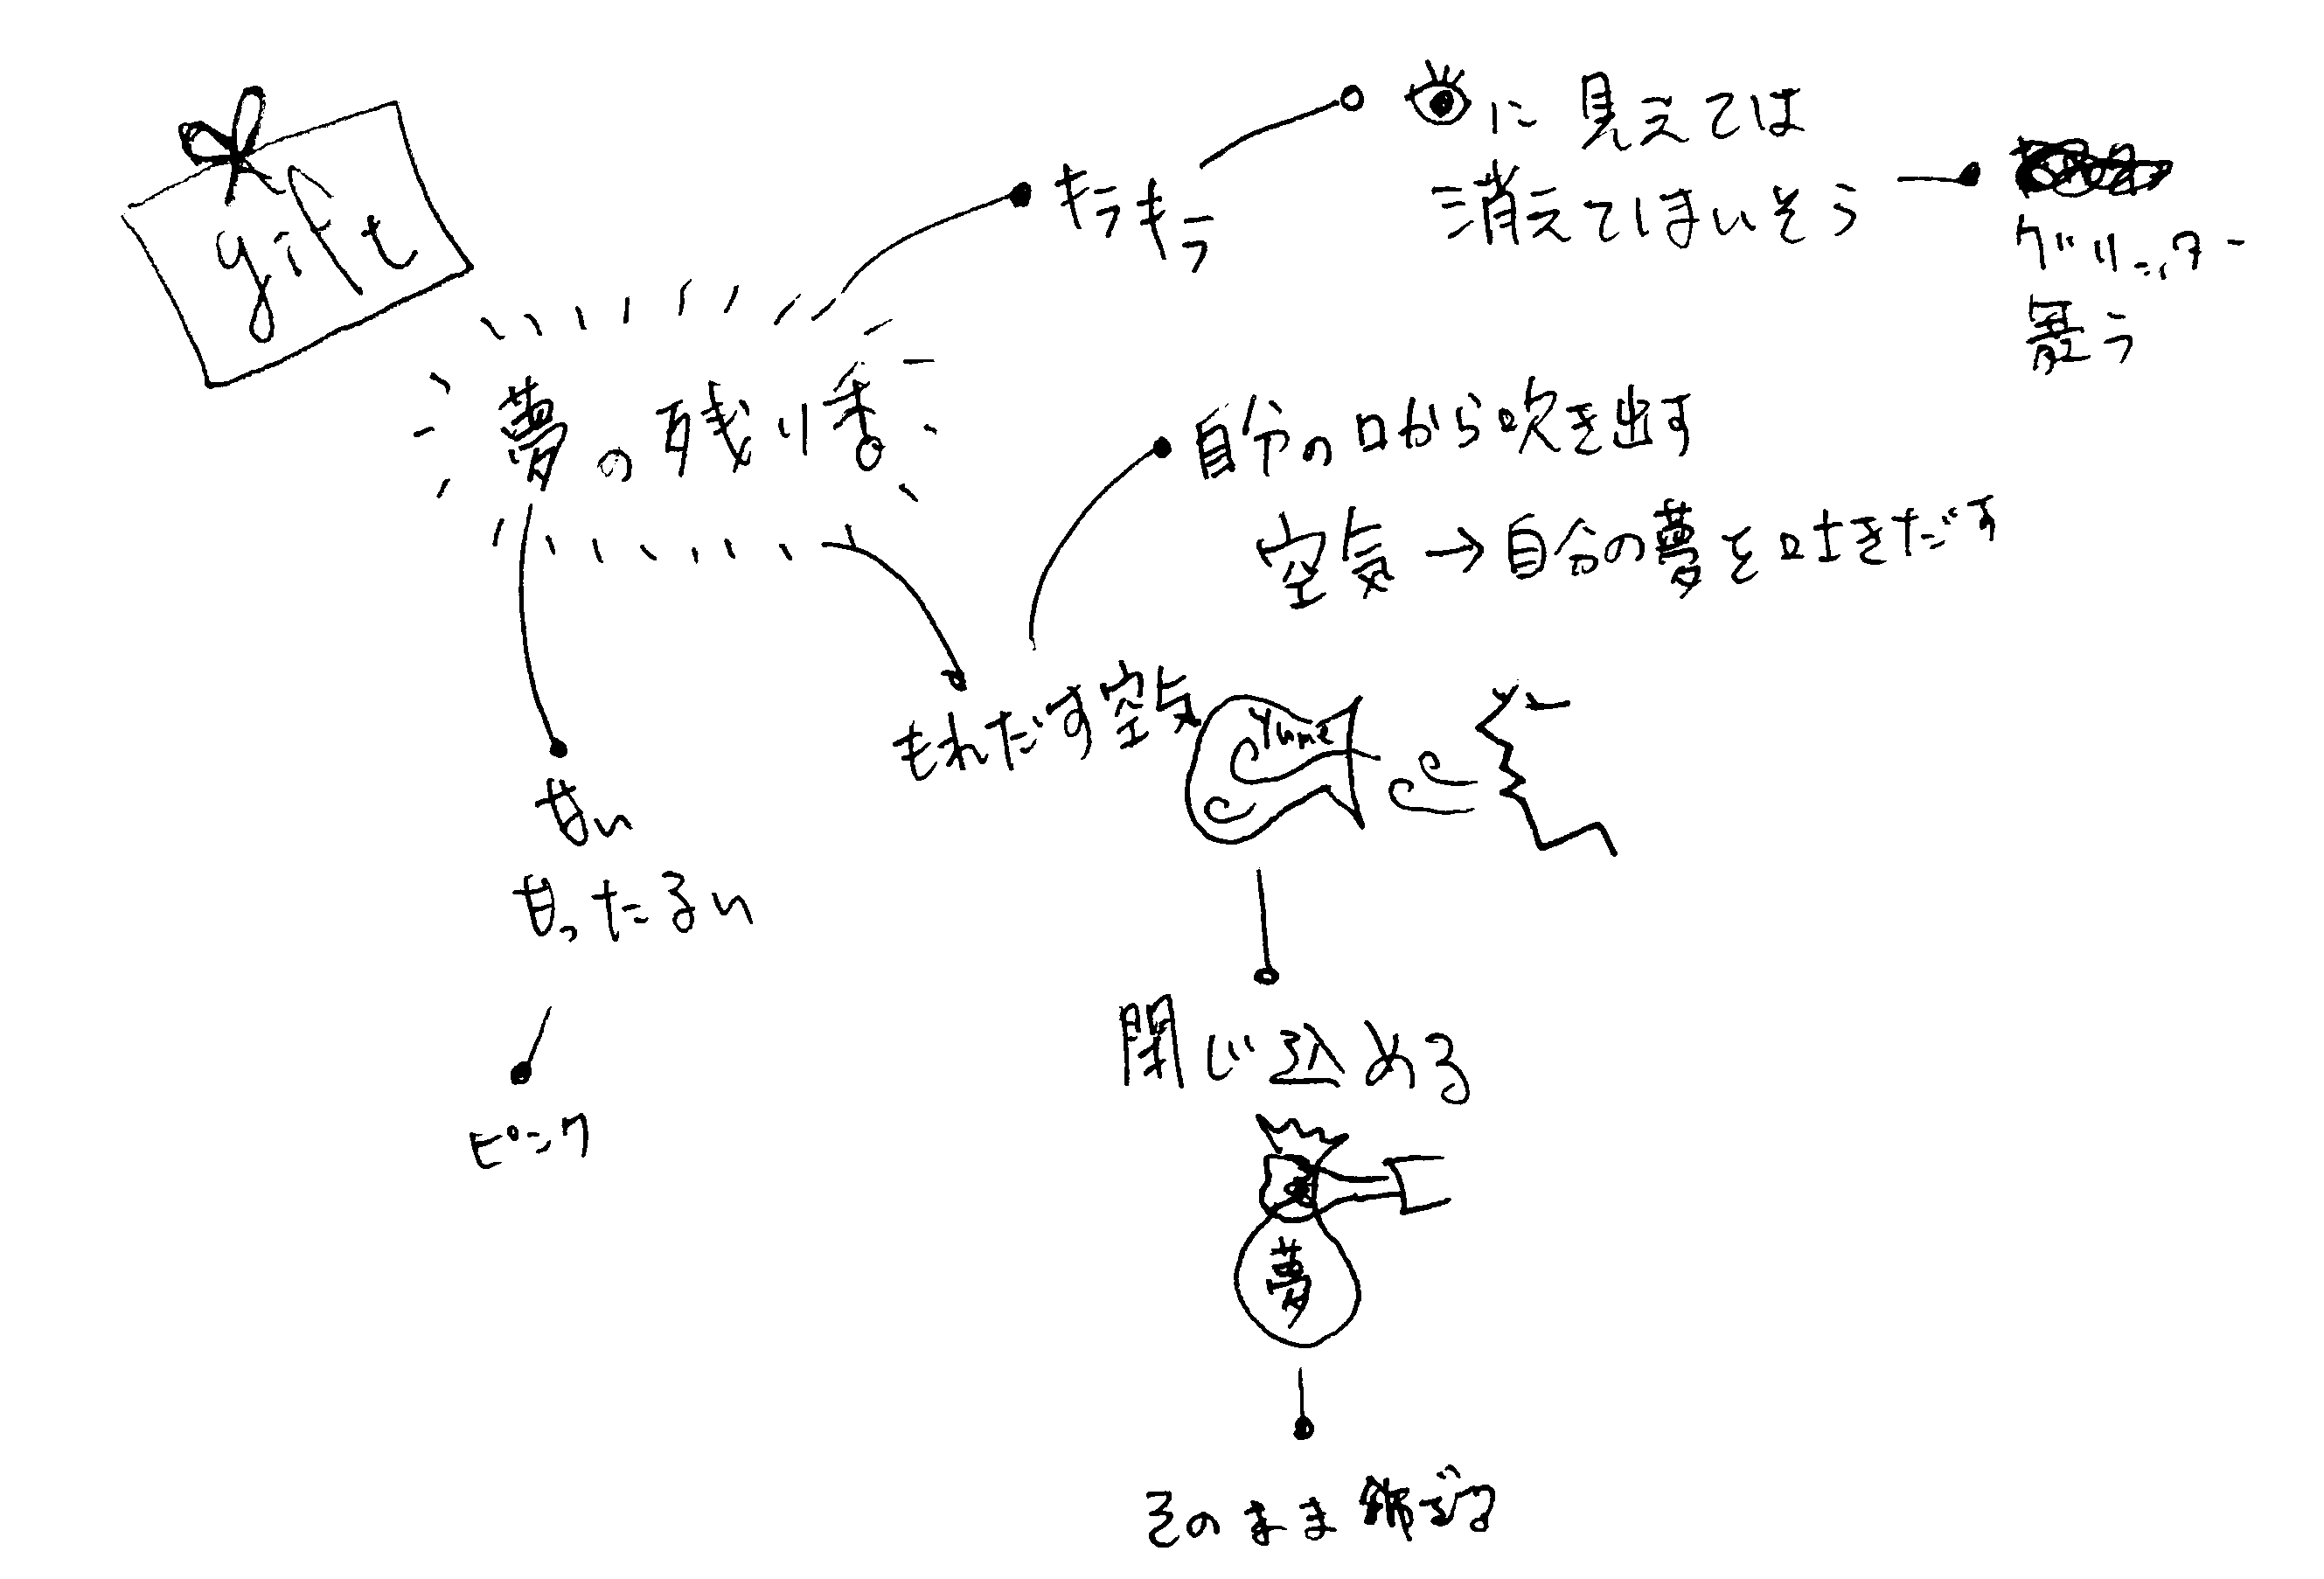 gift
夢の残り香
キラキラ
に見えては
消えてしまいそう
グリッター
舞う
自分の口から吹き出す
空気→自分の夢を吐きだす
もれだす空気
Yume
甘い
甘ったるい
ピンク
閉じ込める
夢
そのまま